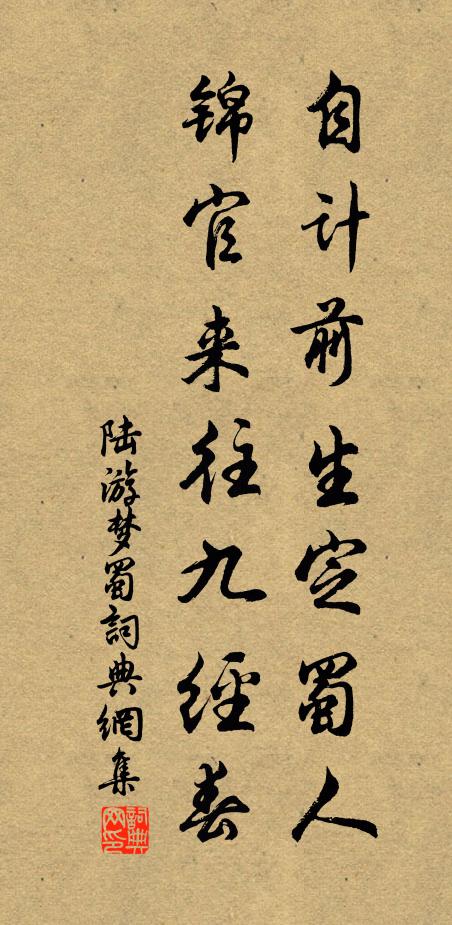 自计前生定蜀人
锦官来往九经春
陆游梦蜀詞典網集
詞典网印